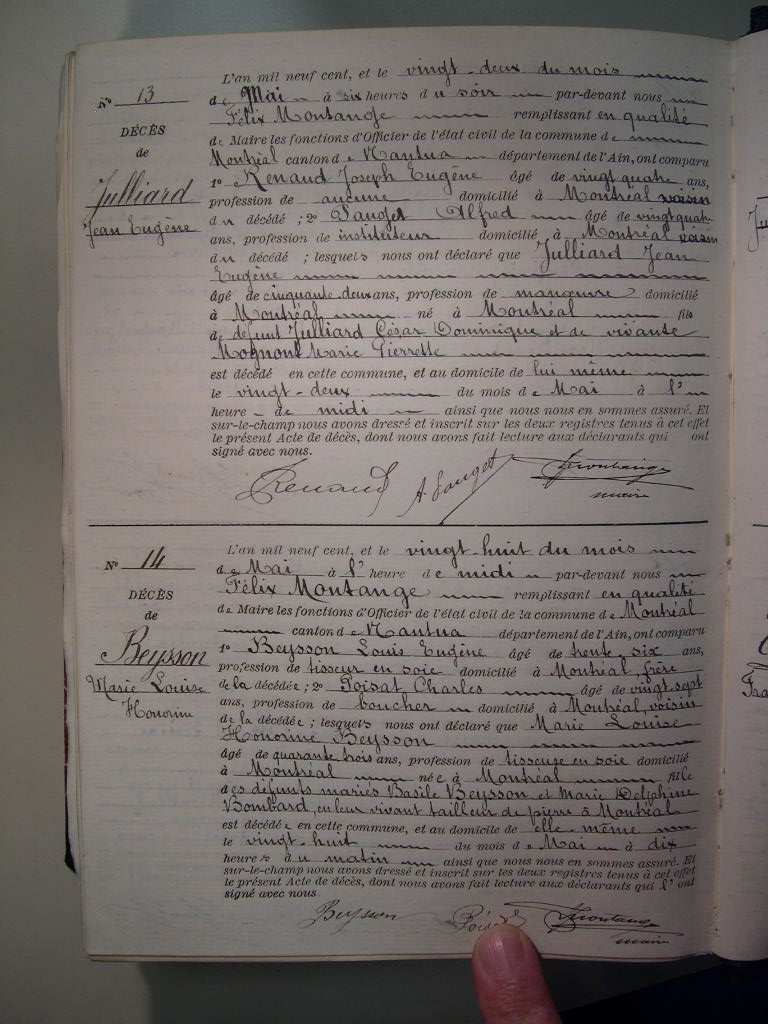 N° 13
DÉCÈS
de
Julliard
Jean Eugène
L'an mil neuf cent, et le vingt-deux du mois
de Mai à six heures du soir par-devant nous
Félix Montange remplissant en qualité
de Maire les fonctions d'Officier de l'état civil de la commune de
Montréal canton de Nantua département de l'Ain, ont comparu
1° Renaud Joseph Eugène âgé de vingt quatre ans,
profession de aucune domicilié à Montréal voisin
du décédé ; 2° Sauget Alfred âgé de vingt quatre
ans, profession de instituteur domicilié à Montréal voisin
du décédé ; lesquels nous ont déclaré que Julliard Jean
Eugène
âgé de cinquante-deux ans, profession de manœuvre domicilié
à Montréal né à Montréal fils
de défunt Julliard César Dominique et de vivante
Mognont Marie Pierrette
est décédé en cette commune, et au domicile de lui même
le vingt-deux du mois de Mai à l'
heure de midi ainsi que nous nous en sommes assuré. Et
sur-le-champ nous avons dressé et inscrit sur les deux registres tenus à cet effet
le présent Acte de décès, dont nous avons fait lecture aux déclarants qui ont
signé avec nous.
Renaud A. Sauget Fmontange
maire
N° 14
DÉCÈS
de
Beysson
Marie Louise
Honorine
L'an mil neuf cent, et le vingt-huit du mois
de Mai à l'heure de midi par-devant nous
Félix Montange remplissant en qualité
de Maire les fonctions d'Officier de l'état civil de la commune de Montréal
canton de Nantua département de l'Ain, ont comparu
1° Beysson Louis Eugène âgé de trente six ans,
profession de tisseur en soie domicilié à Montréal, frère
de la décédée ; 2° Poisat Charles âgé de vingt sept
ans, profession de boucher domicilié à Montréal, voisin
de la décédée ; lesquels nous ont déclaré que Marie Louise
Honorine Beysson
âgé de quarante trois ans, profession de tisseuse en soie domicilié
à Montréal née à Montréal fille
des défunts mariés Basile Beysson et Marie Delphine
Bombard, en leur vivant tailleur de pierre à Montréal
est décédée en cette commune, et au domicile de elle-même
le vingt-huit du mois de Mai à dix
heures du matin ainsi que nous nous en sommes assuré. Et
sur-le-champ nous avons dressé et inscrit sur les deux registres tenus à cet effet
le présent Acte de décès, dont nous avons fait lecture aux déclarants qui l'ont
signé avec nous
Beysson Fmontange
maire